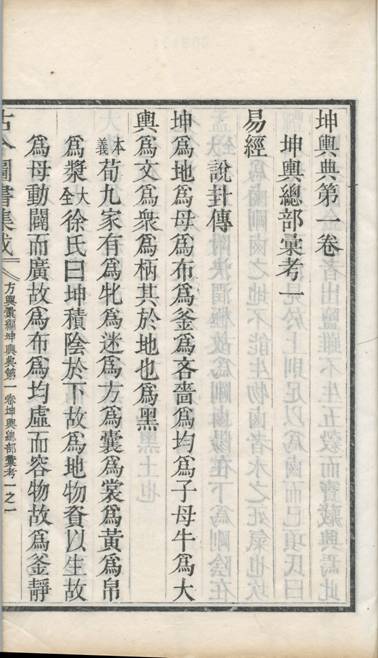 坤輿典第一卷
坤輿總部彙考一
易經
說卦傳
坤爲地爲母爲布爲釜爲吝嗇爲均爲子母牛爲大
輿爲文爲衆爲柄其於地也爲黑
本義荀九家有爲牝爲迷爲方爲囊爲裳爲黃爲帛
爲漿大全徐氏曰坤積陰於下故爲地物資以生故
爲母動闢而廣故爲布爲均虛而容物故爲釜靜
古今圖書集成
方輿彙編坤輿典第一卷坤輿總部彙考一之一